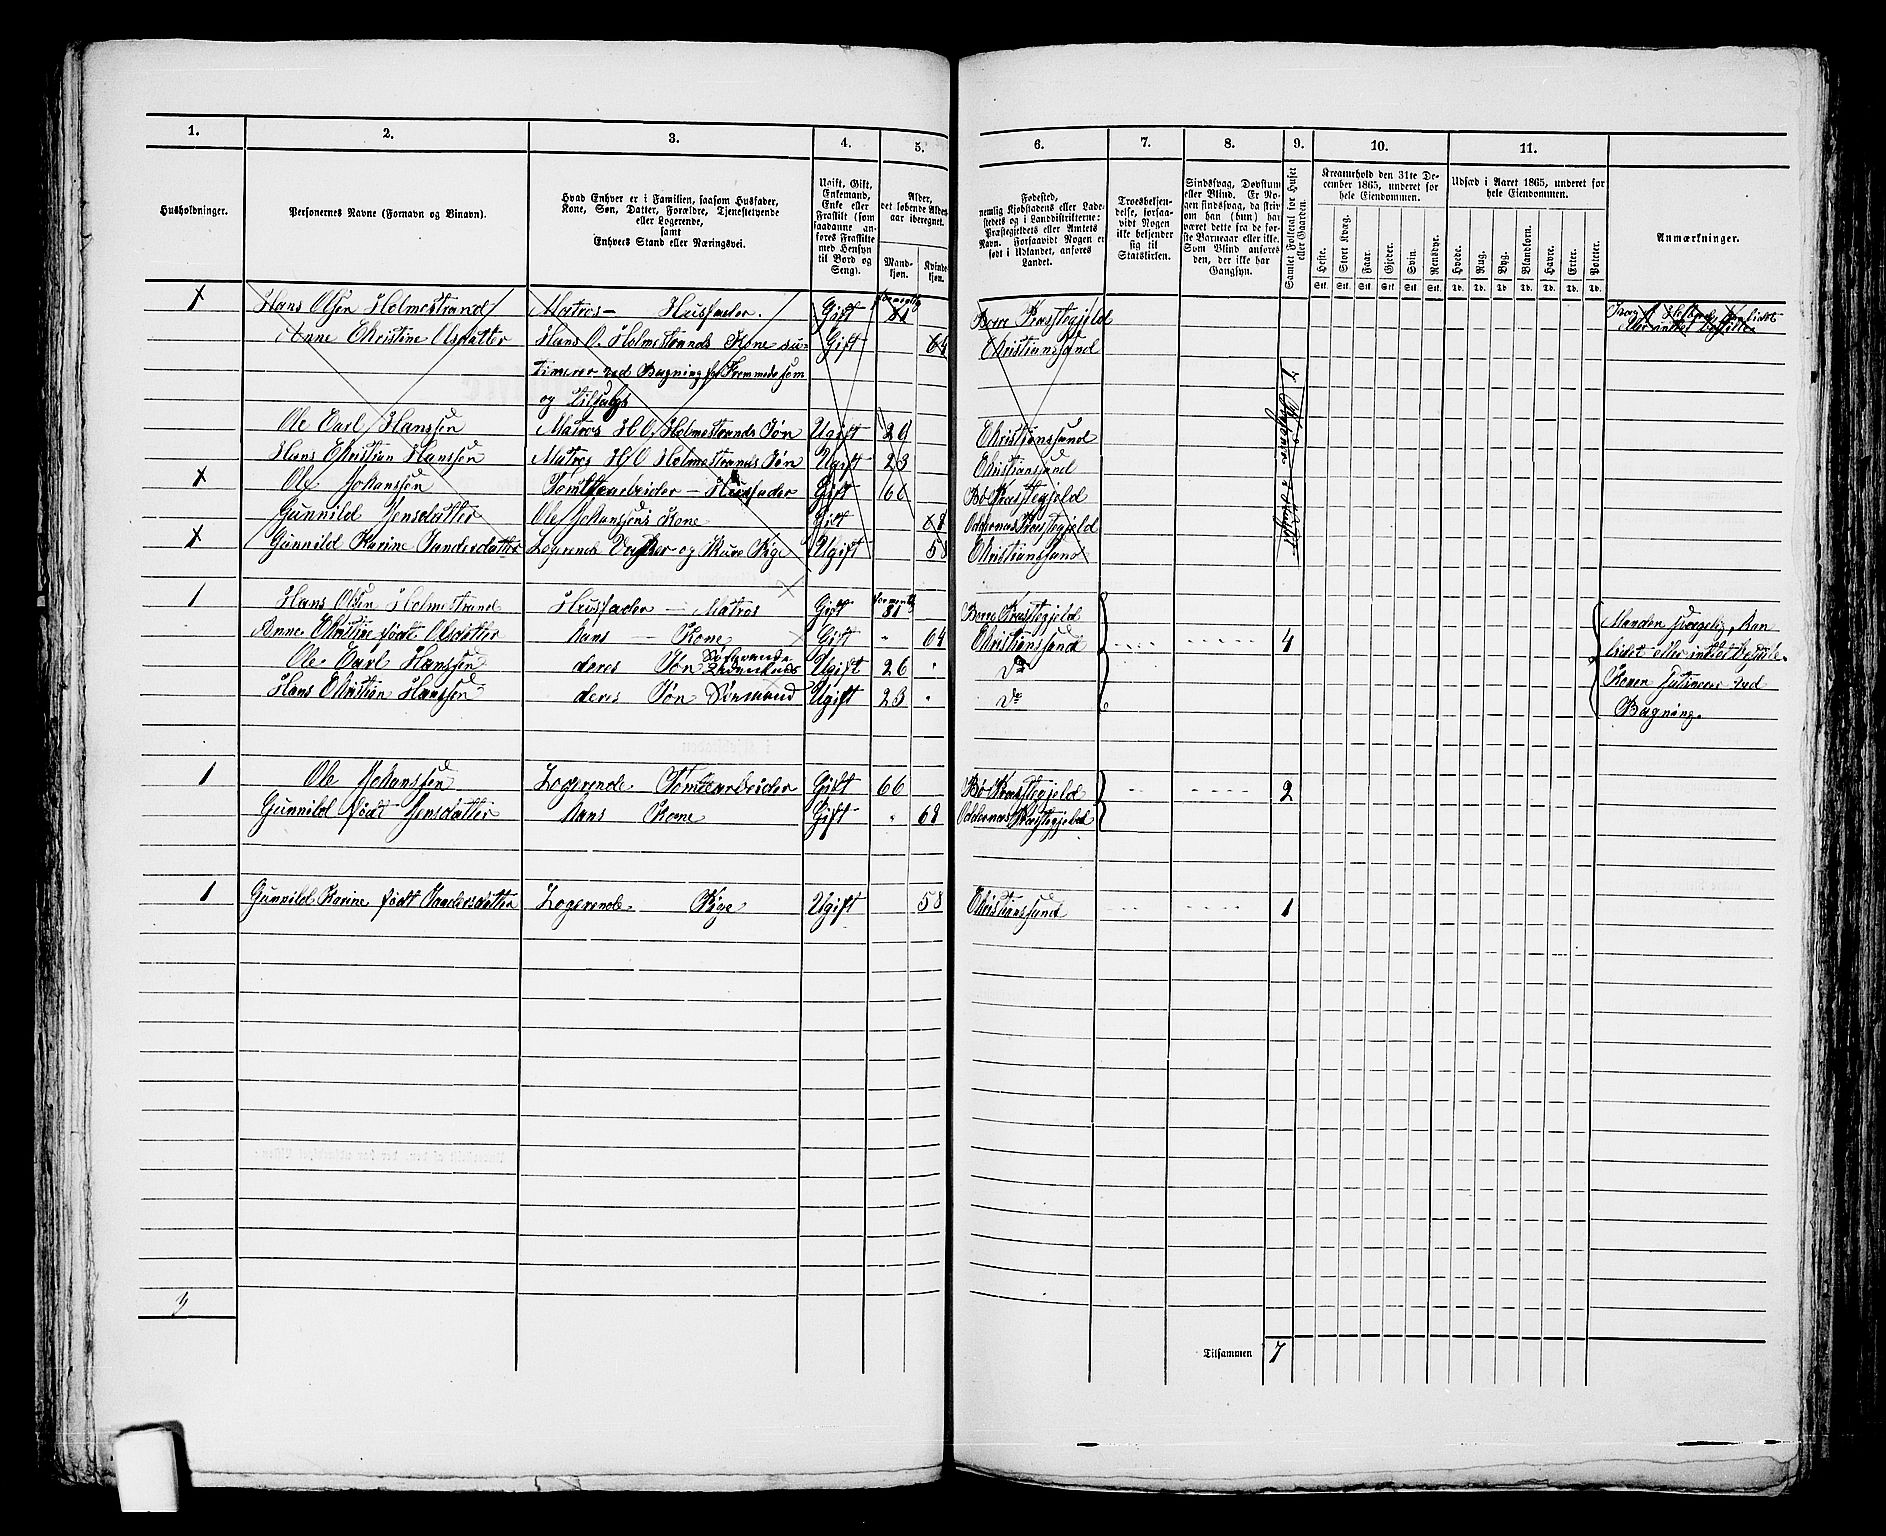 1. 2. 3. 4. 5. 6. 7. 8. 9. 10. 11.
Husholdninger.
Personernes Navne (Fornavn og Binavn).
Hvad Enhver er i Familien, saasom Husfader,
Kone, Søn, Datter, Forældre, Tjenestetyende
eller Logerende,
samt
Enhvers Stand eller Næringsvei.
Ugift, Gift,
Enkemand,
Enke eller
Fraskilt (som
saadanne an-
føres Fraskilte
med Hensyn
til Bord og
Seng).
Alder,
det løbende Alders-
aar iberegnet.
Mand-
kjøn.
Kvinde-
kjøn.
Fødested,
nemlig Kjøbstadens eller Lade-
stedets og i Landdistrikterne:
Præstegjeldets eller Amtets
Navn. Forsaavidt Nogen er
født i Udlandet, anføres
Landet.
Troesbekjen-
delse, forsaa-
vidt Nogen
ikke bekjender
sig til
Statskirken.
Sindssvag, Døvstum
eller Blind. Er No-
gen sindssvag, da skriv
om han (hun) har
været dette fra de før-
ste Barneaar eller ikke.
Som Blind anføres
den, der ikke har
Gangsyn.
Samlet Folketal for Huset
eller Gaarden.
Kreaturhold den 31te De-
cember 1865, underet for
hele Eiendommen.
Heste. Stort Kvæg. Faar. Gjeder. Svin. Rensdyr.
Stk. Stk. Stk. Stk. Stk. Stk.
Udsæd i Aaret 1865, underet for
hele Eiendommen.
Hvede. Rug. Byg. Blandkorn. Havre. Erter. Poteter.
Td. Td. Td. Td. Td. Td. Td.
Anmærkninger.
1 Hans Olsen Holmestrand Matros — Husfader. Gift 81 Borre Præstegjeld
Anne Christine Olsdatter Hans O. Holmestrands Kone su- Gift 64 Christianssand
tinerer ved Bagning for Fremmede som
og Tilsalgs
Ole Carl Hanssen Matros H O Holmestrands Søn Ugift 26 Christianssand
Hans Christian Hanssen Matros H O Holmestrands Søn Ugift 23 Christianssand
1 Ole Johanssen Tomtearbeider — Husfader Gift 66 Bø Præstegjeld
Gunnild Jensdatter Ole Johanssens Kone Gift 68 Oddernes Præstegjeld
1 Gunnild Karine Sandersdatter Logerende og Pige Ugift 58 Christianssand
1 Hans Olsen Holmestrand Husfader — Matros Gift formentlig 81 Borre Præstegjeld
Anne Christine født Olsdatter hans — Kone Gift " 64 Christianssand 4
Ole Carl Hanssen deres Søn Søfarende Ugift 26 " Do
Hans Christian Hanssen deres Søn Sømand Ugift 23 " Do
Manden svagelig, kan
lidet eller intet bestille.
Konen sutinerer ved
Bagning.
1 Ole Johanssen Logerende Tomtearbeider Gift 66 Bø Præstegjeld 2
Gunnild født Jensdatter hans Kone Gift " 68 Oddernes Præstegjeld
1 Gunnild Karine født Sandersdatter Logerende Pige Ugift 58 Christianssand 1
3
Tilsammen 7